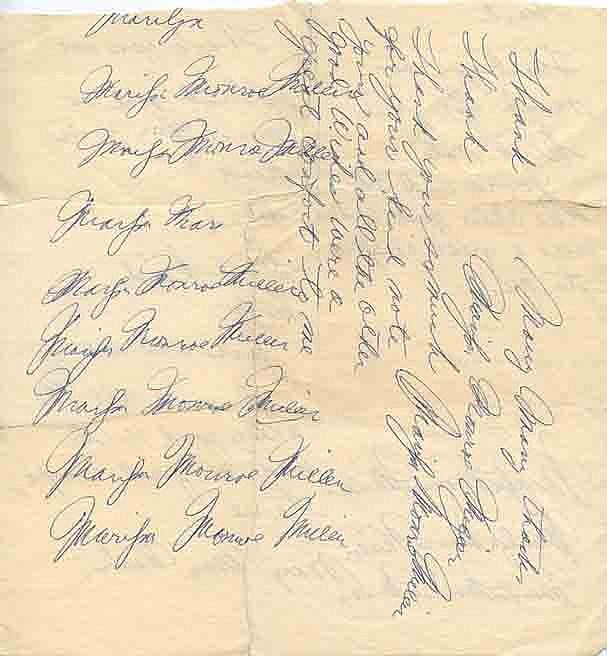 Marilyn
Marilyn Monroe Miller
Marilyn Monroe Miller
Marilyn Mon
Marilyn Monroe Miller
Marilyn Monroe Miller
Marilyn Monroe Miller
Marilyn Monroe Miller
Marilyn Monroe Miller
Thank
Thank
Thank you so much
for your kind note
yours and all the other
good wishes were a
great comfort to me
Many Many thanks
Marilyn Monroe Miller
Marilyn Monroe Miller